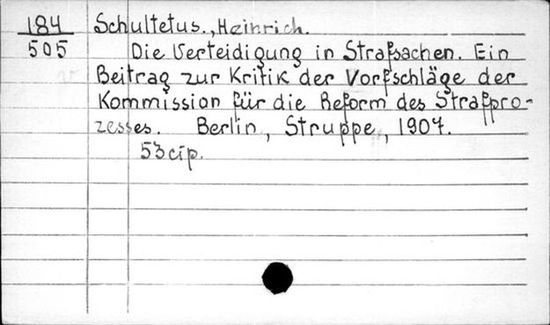 184
505
Schultetus., Heinrich.
Die Verteidigung in Strafsachen. Ein
Beitrag zur Kritik der Vorfschläge der
Kommission für die Reform des Strafpro-
zesses. Berlin, Struppe, 1907.
53 cip.